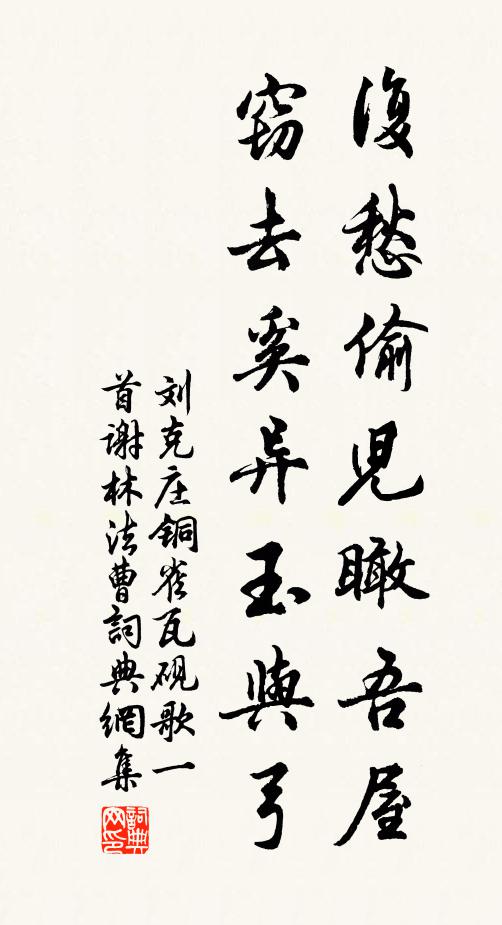 復愁偷兒瞰吾屋
窃去奚异玉與弓
刘克庄铜雀瓦砚歌一
首谢林法曹詞典網集
詞典
网印